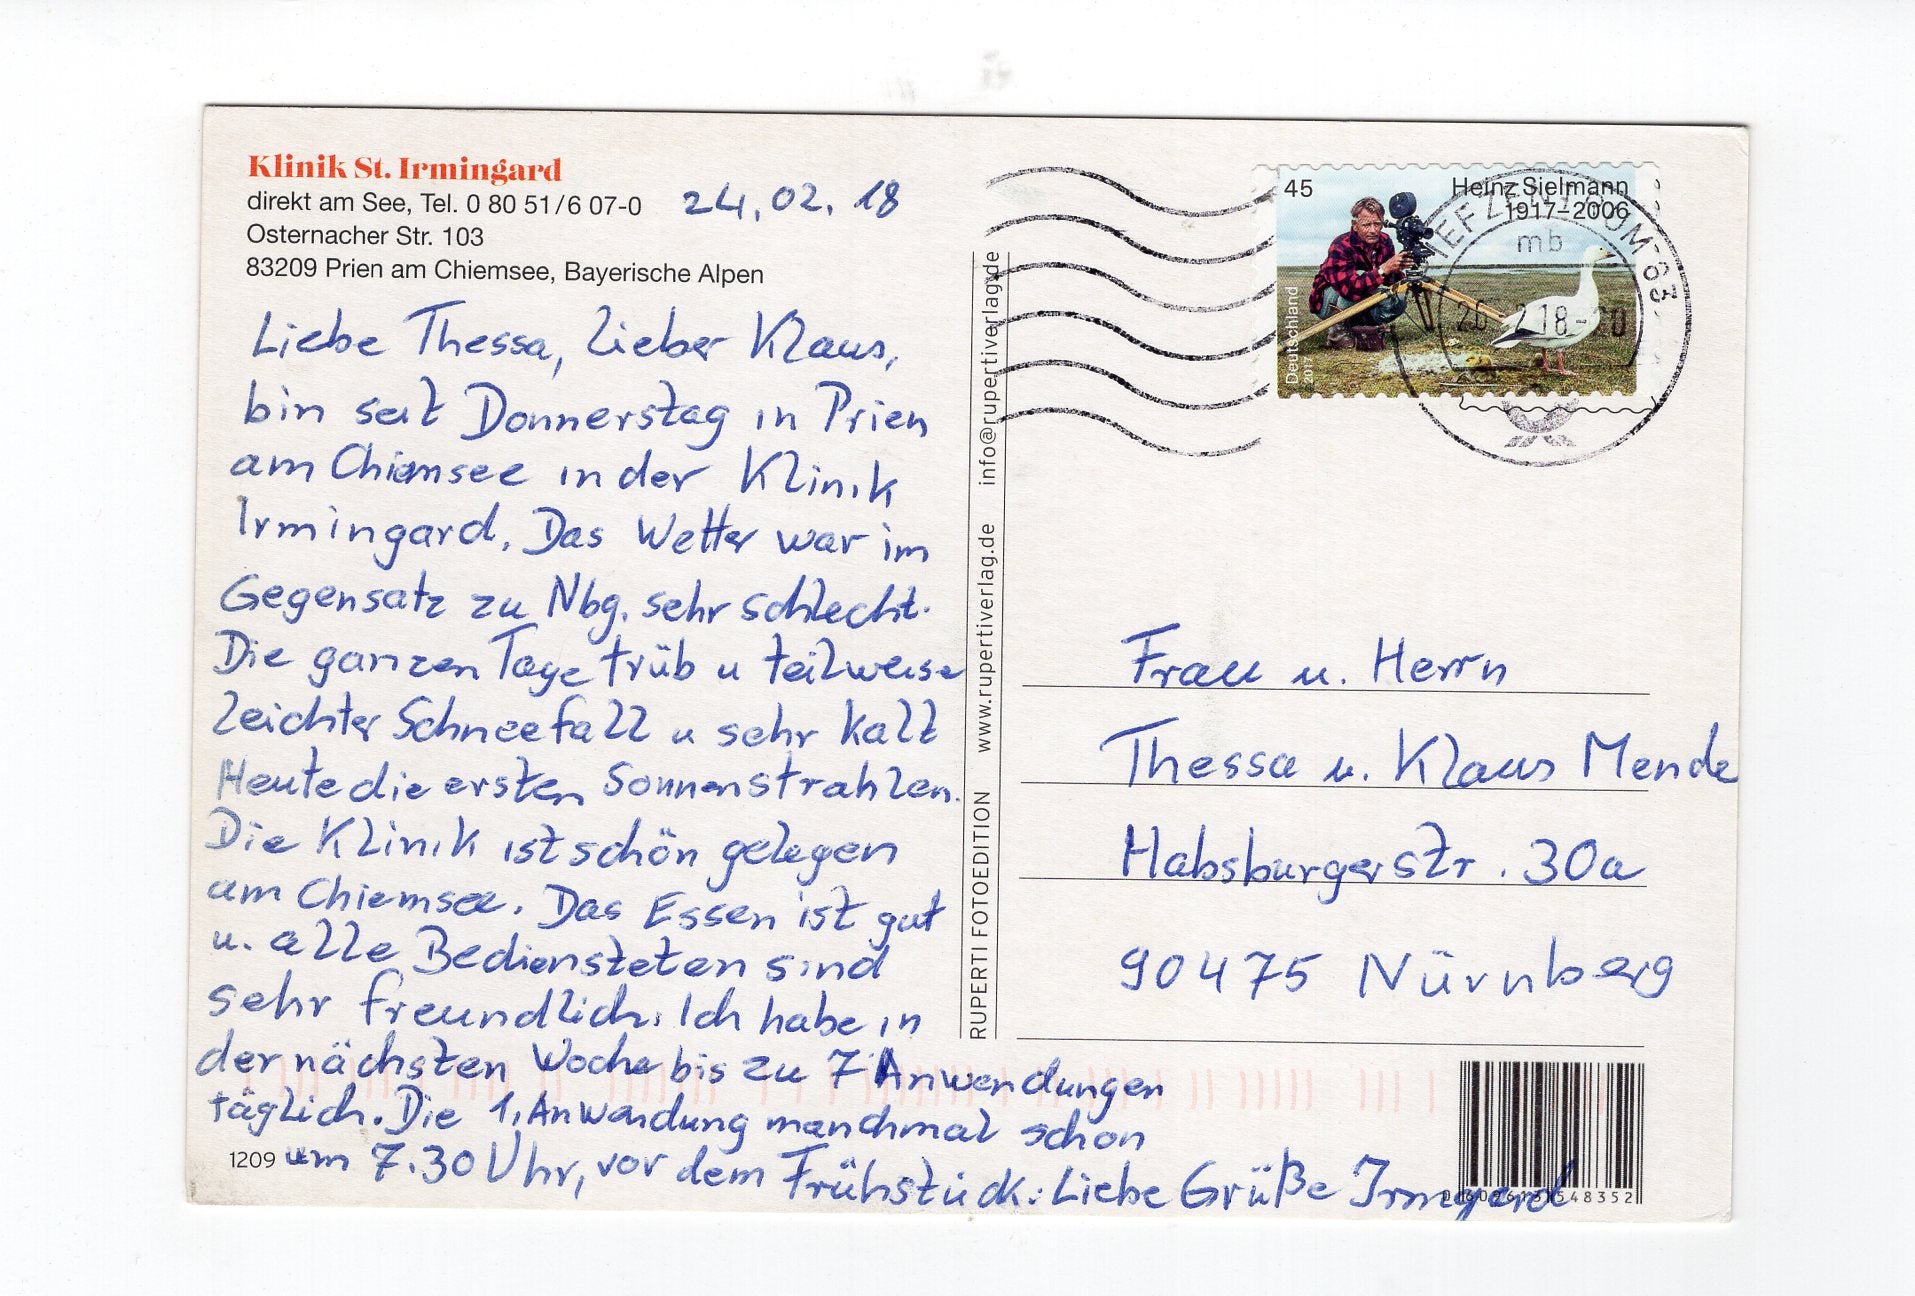 Klinik St. Irmingard
direkt am See, Tel. 0 80 51/6 07-0
24.02.18
Osternacher Str. 103
83209 Prien am Chiemsee, Bayerische Alpen
Liebe Thessa, lieber Klaus,
bin seit Donnerstag in Prien
am Chiemsee in der Klinik
Irmingard. Das Wetter war im
Gegensatz zu Nbg. sehr schlecht.
Die ganzen Tage trüb u teilweise
leichter Schneefall u sehr kalt
Heute die ersten Sonnenstrahlen.
Die Klinik ist schön gelegen
am Chiemsee. Das Essen ist gut
u. alle Bediensteten sind
sehr freundlich. Ich habe in
der nächsten Woche bis zu 7 Anwendungen
täglich. Die 1. Anwendung manchmal schon
um 7.30 Uhr, vor dem Frühstück. Liebe Grüße Irmgard
1209
RUPERTI FOTOEDITION www.rupertiverlag.de info@rupertiverlag.de
45
Heinz Sielmann
1917–2006
Deutschland
2017
mb
Frau u. Herrn
Thessa u. Klaus Mende
Habsburgerstr. 30a
90475 Nürnberg